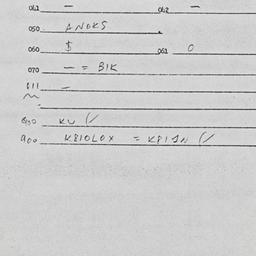 041 — 042 —
050 ANOKS
060 $ 061 0
070 — = BIK
811 —
830 KU
900 KBIOLOX =